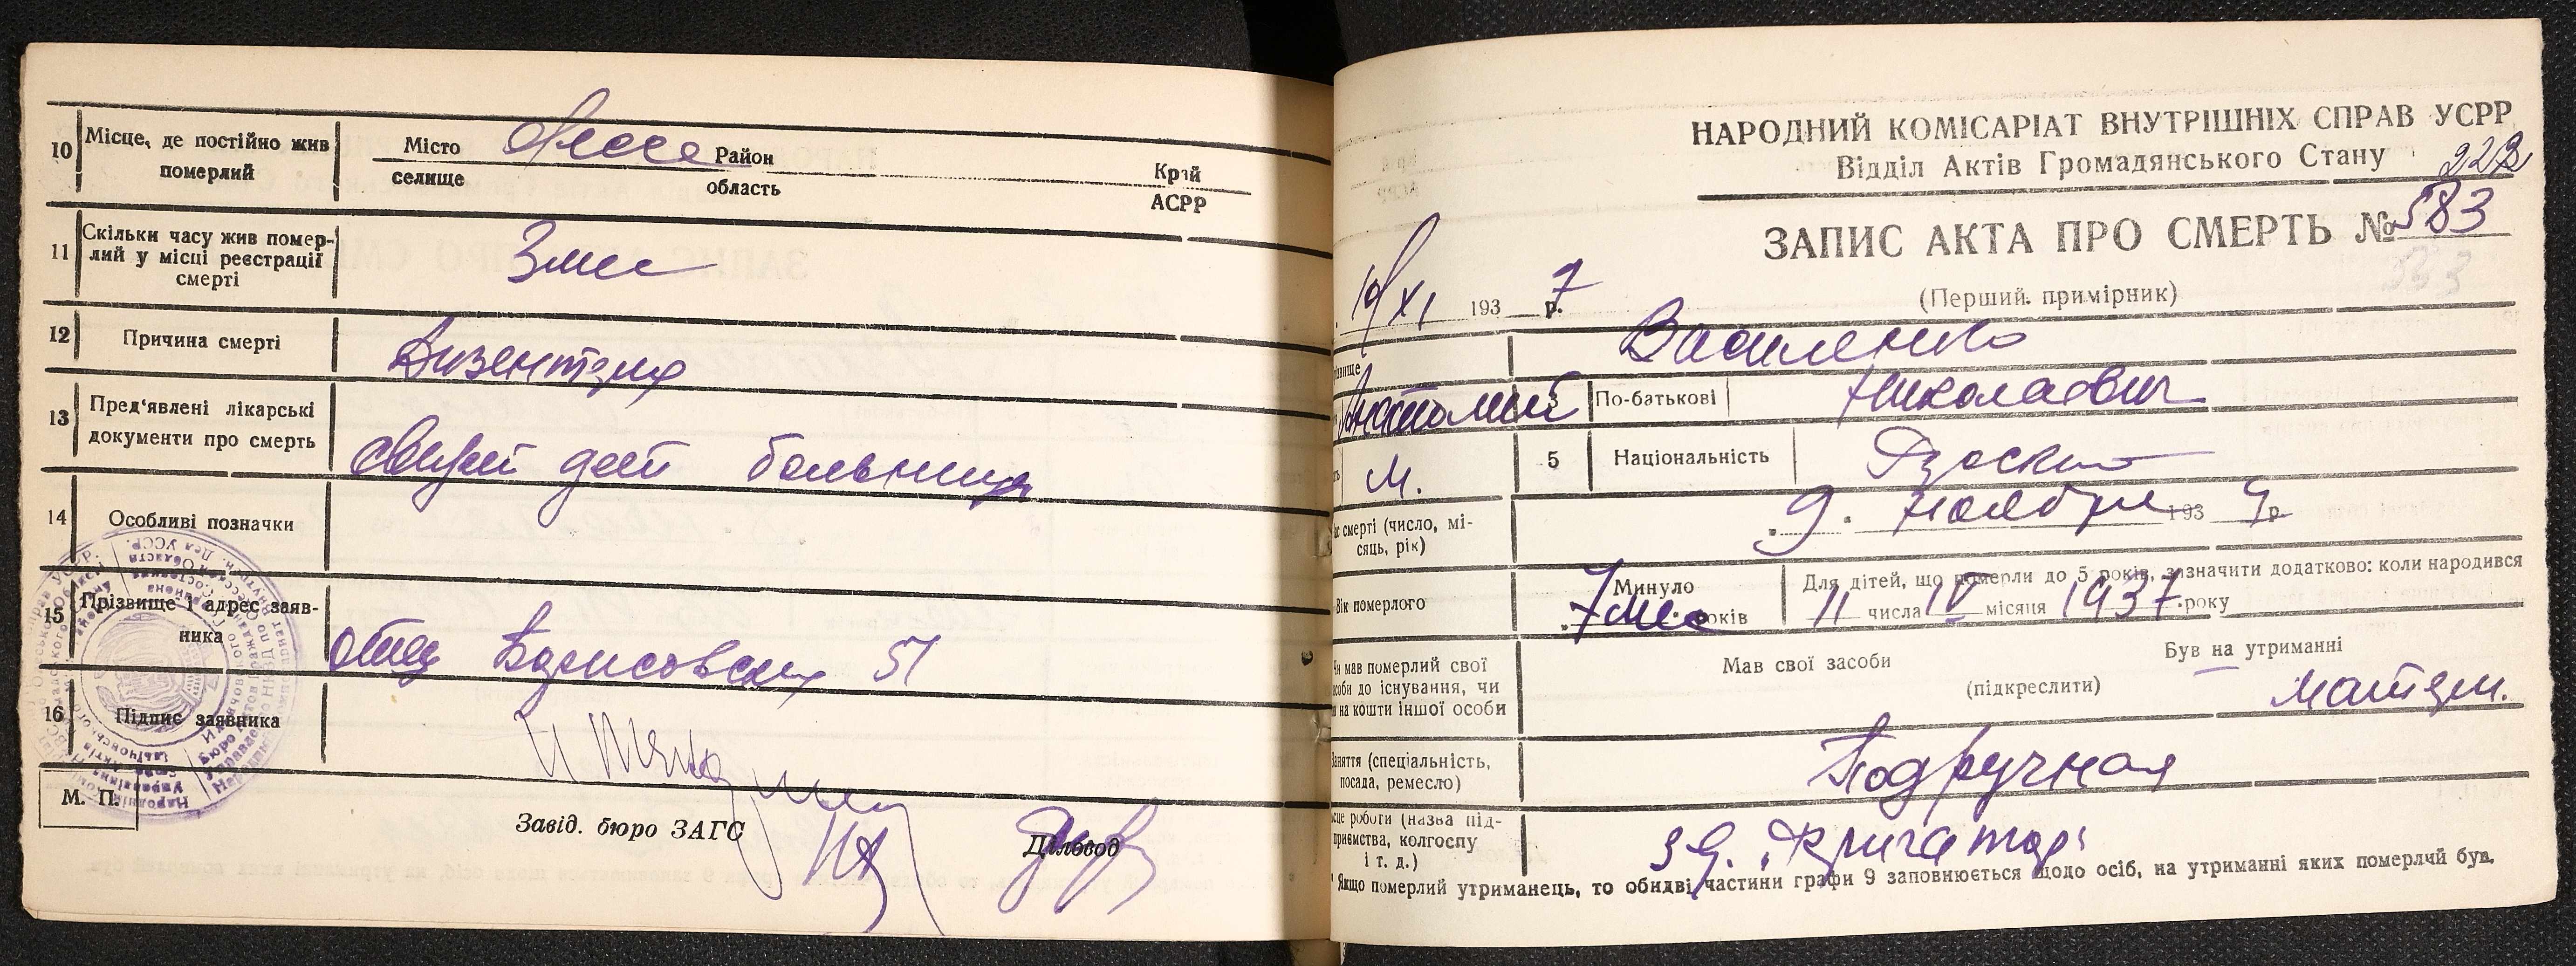 10 Місце, де постійно жив померлий
Місто Одесса Район Край
селище область АСРР
11 Скільки часу жив помер-
лий у місці реєстрації
смерті
12 Причина смерті
Дизентерия
13 Пред'явлені лікарські
документи про смерть
дет больницы
14 Особливі позначки
15 Прізвище і адрес заяв-
ника
отец 51
16 Підпис заявника
М. П.
Завід. бюро ЗАГС
Діловод
НАРОДНИЙ КОМІСАРІАТ ВНУТРІШНІХ СПРАВ УСРР
Відділ Актів Громадянського Стану
223
ЗАПИС АКТА ПРО СМЕРТЬ № 583
10/XI 1937 р.
(Перший примірник)
Василенко
Анатолий 3 По-батькові Николаевич
М. 5 Національність Русский
смерті (число, мі-
сяць, рік)
9. ноября 1937 р.
Вік померлого
Минуло
7 мес років
Для дітей, що померли до 5 років, зазначити додатково: коли народився
11 числа IV місяця 1937 року
Чи мав померлий свої
засоби до існування, чи
на кошти іншої особи
Мав свої засоби
Був на утриманні
(підкреслити)
матери.
Заняття (спеціальність,
посада, ремесло)
Подручная
Місце роботи (назва під-
приємства, колгоспу
і т. д.)
* Якщо померлий утриманець, то обидві частини графи 9 заповнюється щодо осіб, на утриманні яких померлий був.